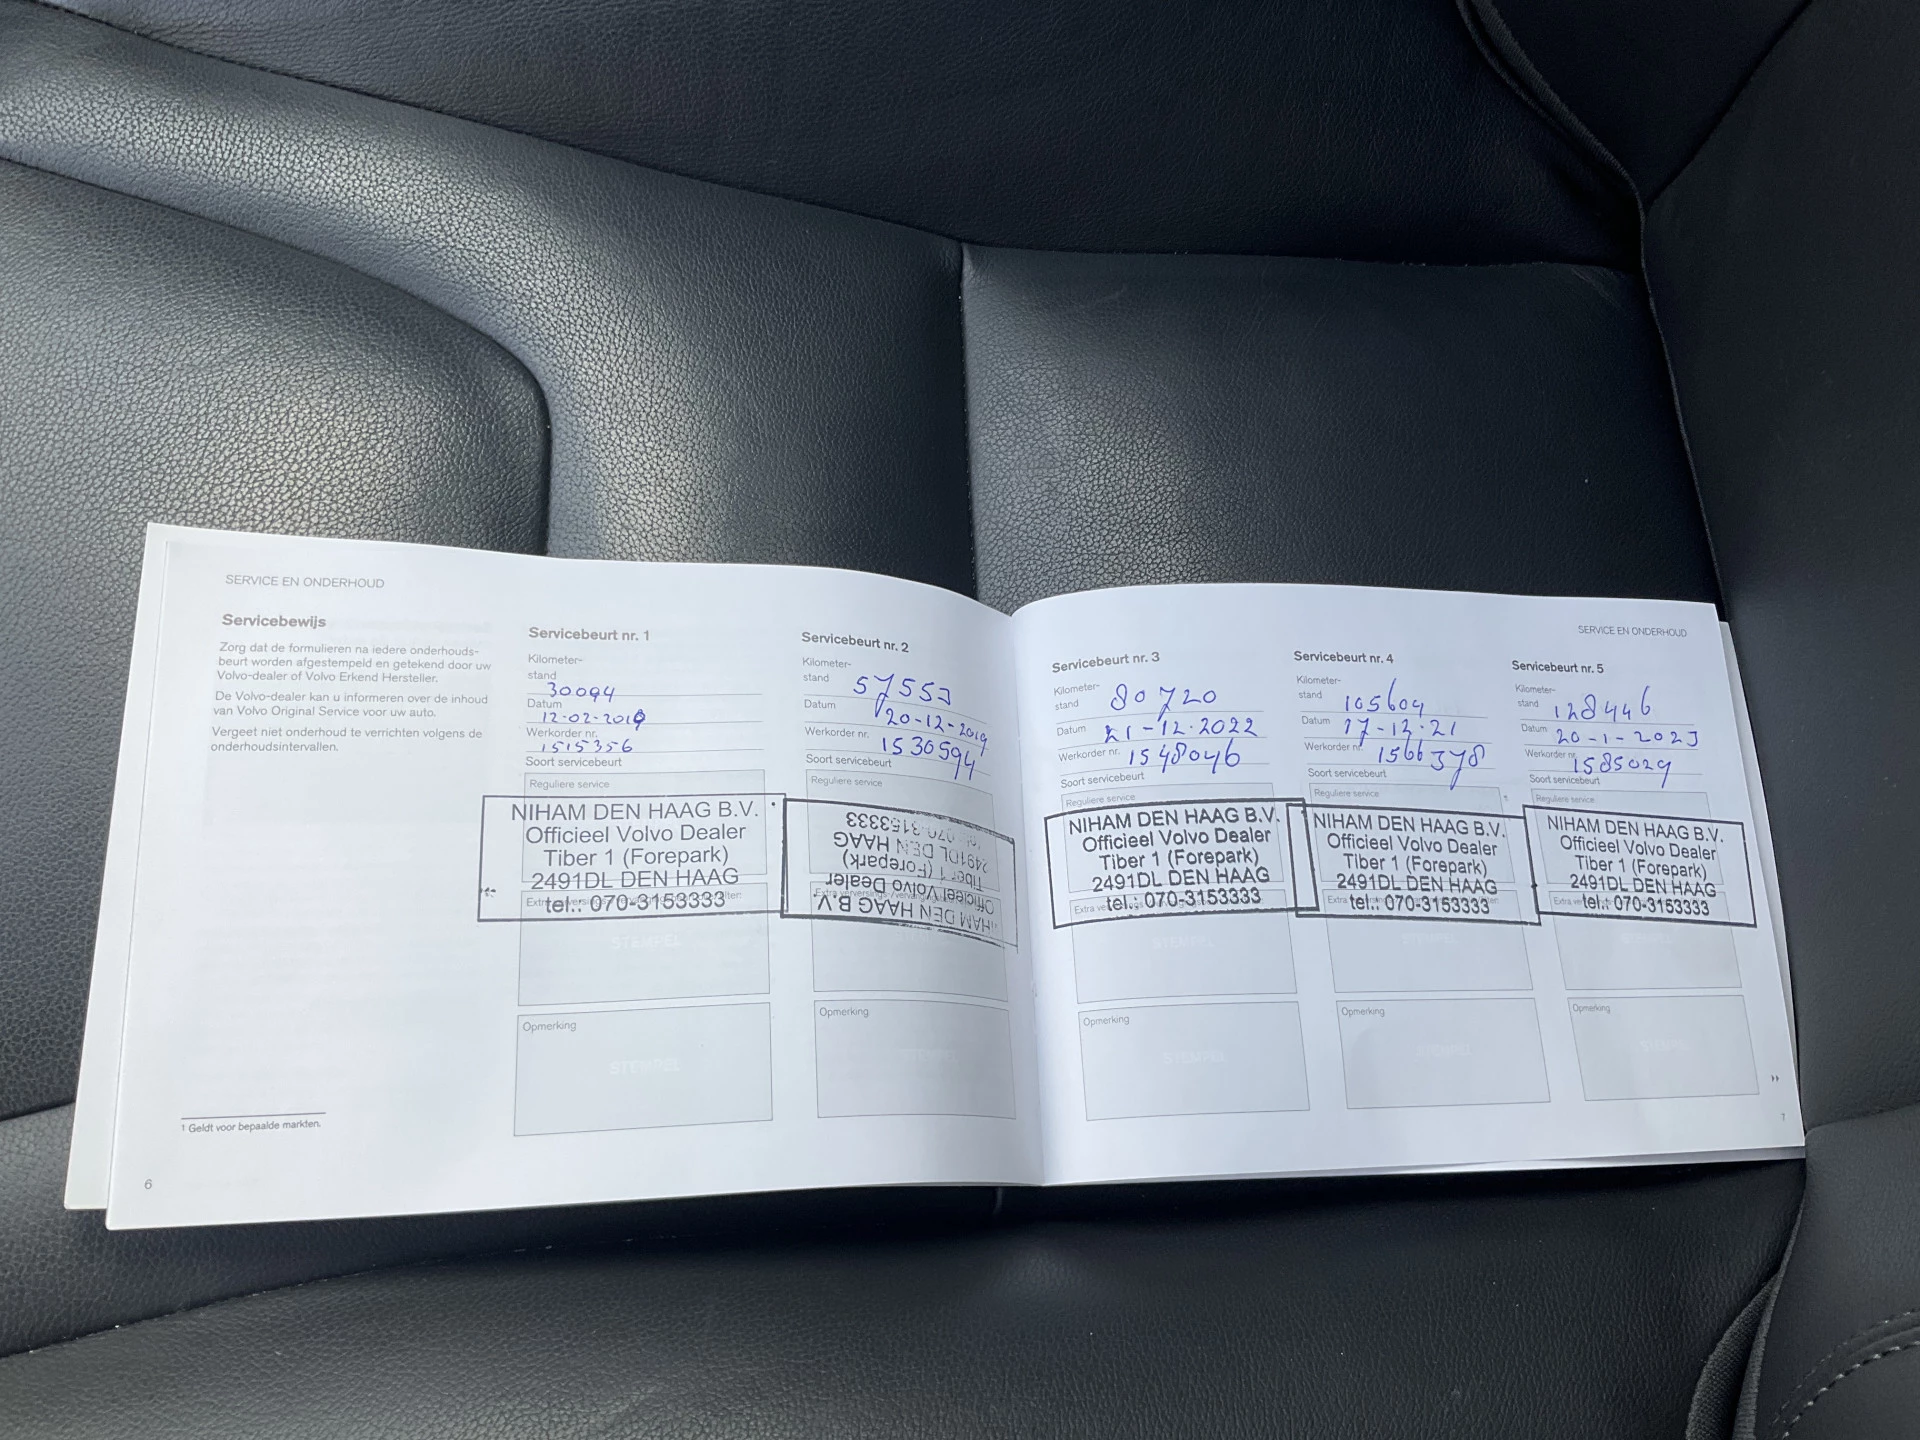 SERVICE EN ONDERHOUD
Servicebewijs
Zorg dat de formulieren na iedere onderhouds-
beurt worden afgestempeld en getekend door uw
Volvo-dealer of Volvo Erkend Hersteller.
De Volvo-dealer kan u informeren over de inhoud
van Volvo Original Service voor uw auto.
Vergeet niet onderhoud te verrichten volgens de
onderhoudsintervallen.
1 Geldt voor bepaalde markten.
6
Servicebeurt nr. 1
Kilometer-
stand
30094
Datum
12-02-2019
Werkorder nr.
1515356
Soort servicebeurt
Reguliere service
NIHAM DEN HAAG B.V.
Officieel Volvo Dealer
Tiber 1 (Forepark)
2491DL DEN HAAG
tel.: 070-3153333
STEMPEL
Opmerking
STEMPEL
Servicebeurt nr. 2
Kilometer-
stand
57553
Datum
20-12-2019
Werkorder nr.
1530594
Soort servicebeurt
Reguliere service
NIHAM DEN HAAG B.V.
Officieel Volvo Dealer
Tiber 1 (Forepark)
2491DL DEN HAAG
tel.: 070-3153333
Opmerking
STEMPEL
SERVICE EN ONDERHOUD
Servicebeurt nr. 3
Kilometer-
stand
80720
Datum
21-12-2022
Werkorder nr.
1548046
Soort servicebeurt
Reguliere service
NIHAM DEN HAAG B.V.
Officieel Volvo Dealer
Tiber 1 (Forepark)
2491DL DEN HAAG
tel.: 070-3153333
STEMPEL
Opmerking
STEMPEL
Servicebeurt nr. 4
Kilometer-
stand
105604
Datum
17-12-21
Werkorder nr.
1566378
Soort servicebeurt
Reguliere service
NIHAM DEN HAAG B.V.
Officieel Volvo Dealer
Tiber 1 (Forepark)
2491DL DEN HAAG
tel.: 070-3153333
STEMPEL
Opmerking
STEMPEL
Servicebeurt nr. 5
Kilometer-
stand
128446
Datum
20-1-2023
Werkorder nr.
1585029
Soort servicebeurt
Reguliere service
NIHAM DEN HAAG B.V.
Officieel Volvo Dealer
Tiber 1 (Forepark)
2491DL DEN HAAG
tel.: 070-3153333
STEMPEL
Opmerking
STEMPEL
7